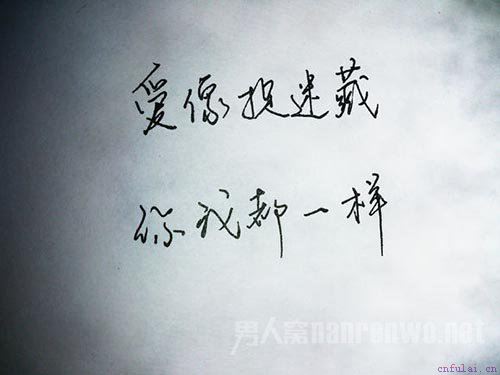 爱像捉迷藏
你我都一样
男人窝nanrenwo.net
cnfulai.cn